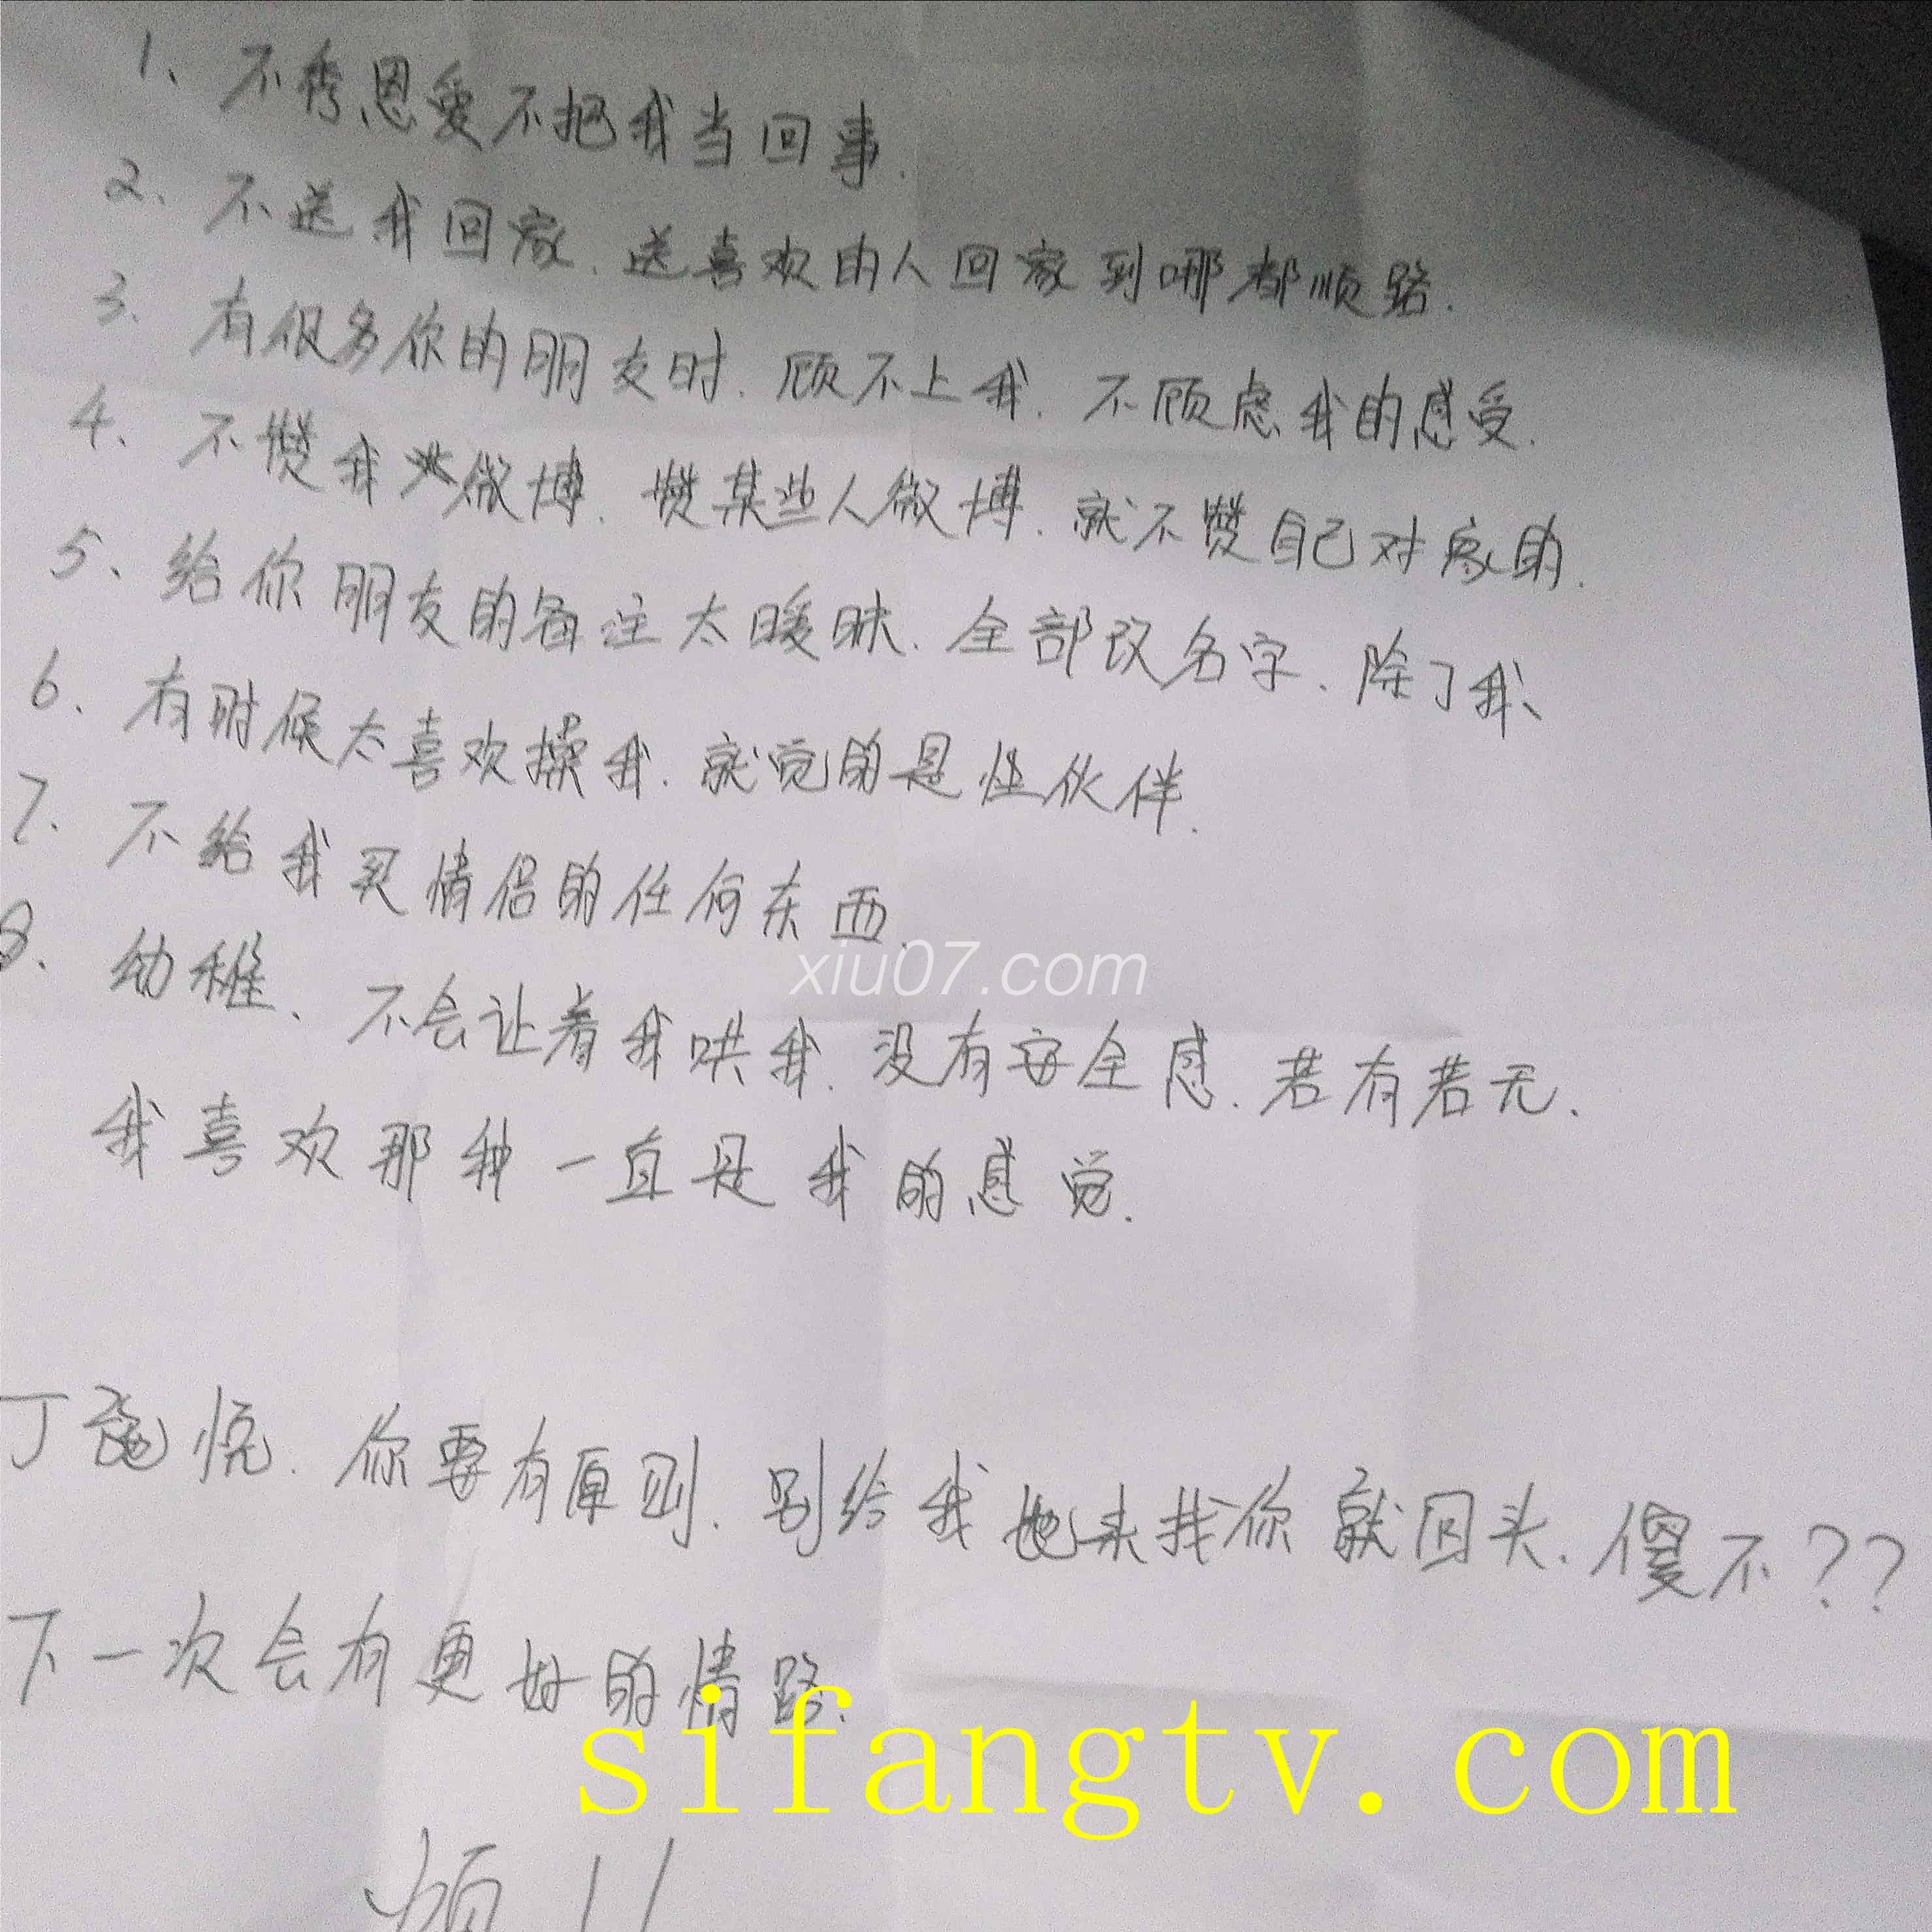 1、不秀恩爱不把我当回事.
2、不送我回家、送喜欢的人回家到哪都顺路.
3、有很多你的朋友时.顾不上我.不顾虑我的感受.
4、不赞我微博.赞某些人微博.就不赞自己对家的.
5、给你朋友的备注太暧昧.全部改名字、除了我、
6、有时候太喜欢操我.就觉的是性伙伴.
7、不给我买情侣的任何东西.
xiu07.com
8、幼稚、不会让着我哄我.没有安全感.若有若无.
我喜欢那种一直是我的感觉.
丁 悦.你要有原则.别给我她来找你就回头.傻不??
下一次会有更好的情路.
sifangtv.com
烦!!